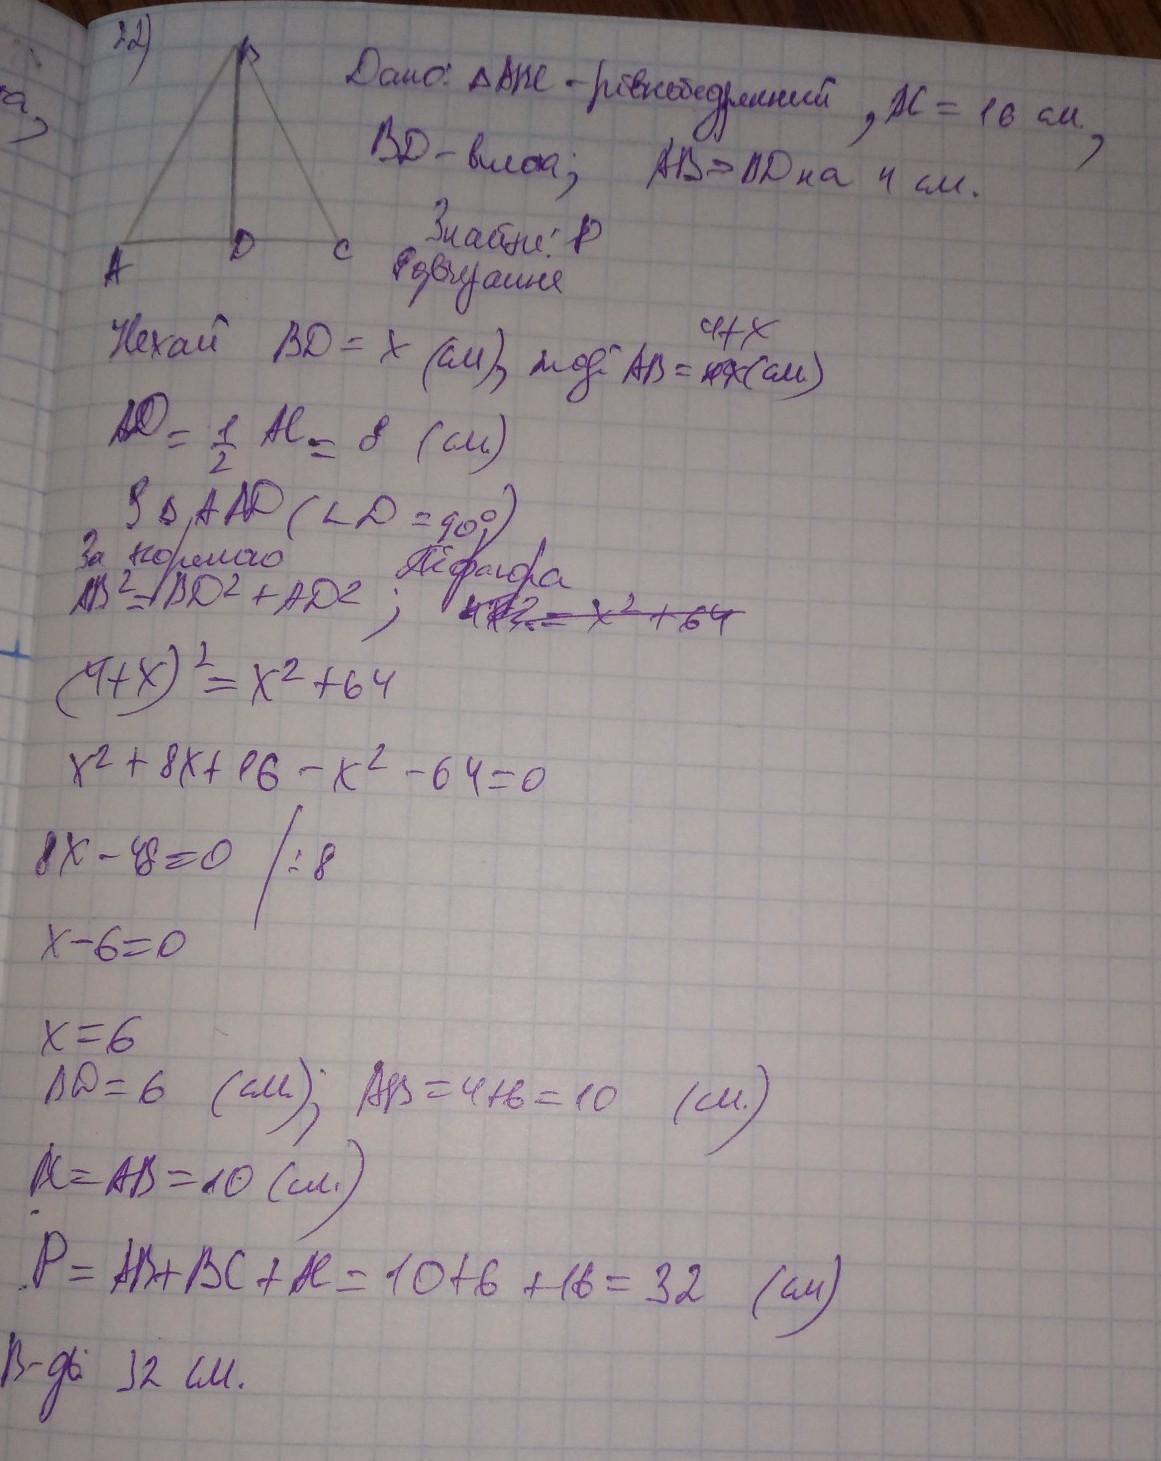 22)
B
Дано: △ABC - рівнобедренний, AC = 16 см,
BD - висота; AB > BD на 4 см.
A D C
Знайти: P
Розв'язання
Нехай BD = x (см), тоді AB = 4+x (см)
AD = 1/2 AC = 8 (см)
З △ ABD (∠D = 90°)
За теоремою Піфагора
AB² = BD² + AD²; = x² + 64
(4+x)² = x² + 64
x² + 8x + 16 - x² - 64 = 0
8x - 48 = 0 / : 8
x - 6 = 0
x = 6
BD = 6 (см); AB = 4+6 = 10 (см.)
BC = AB = 10 (см.)
P = AB + BC + AC = 10 + 6 + 16 = 32 (см)
В-дь: 32 см.